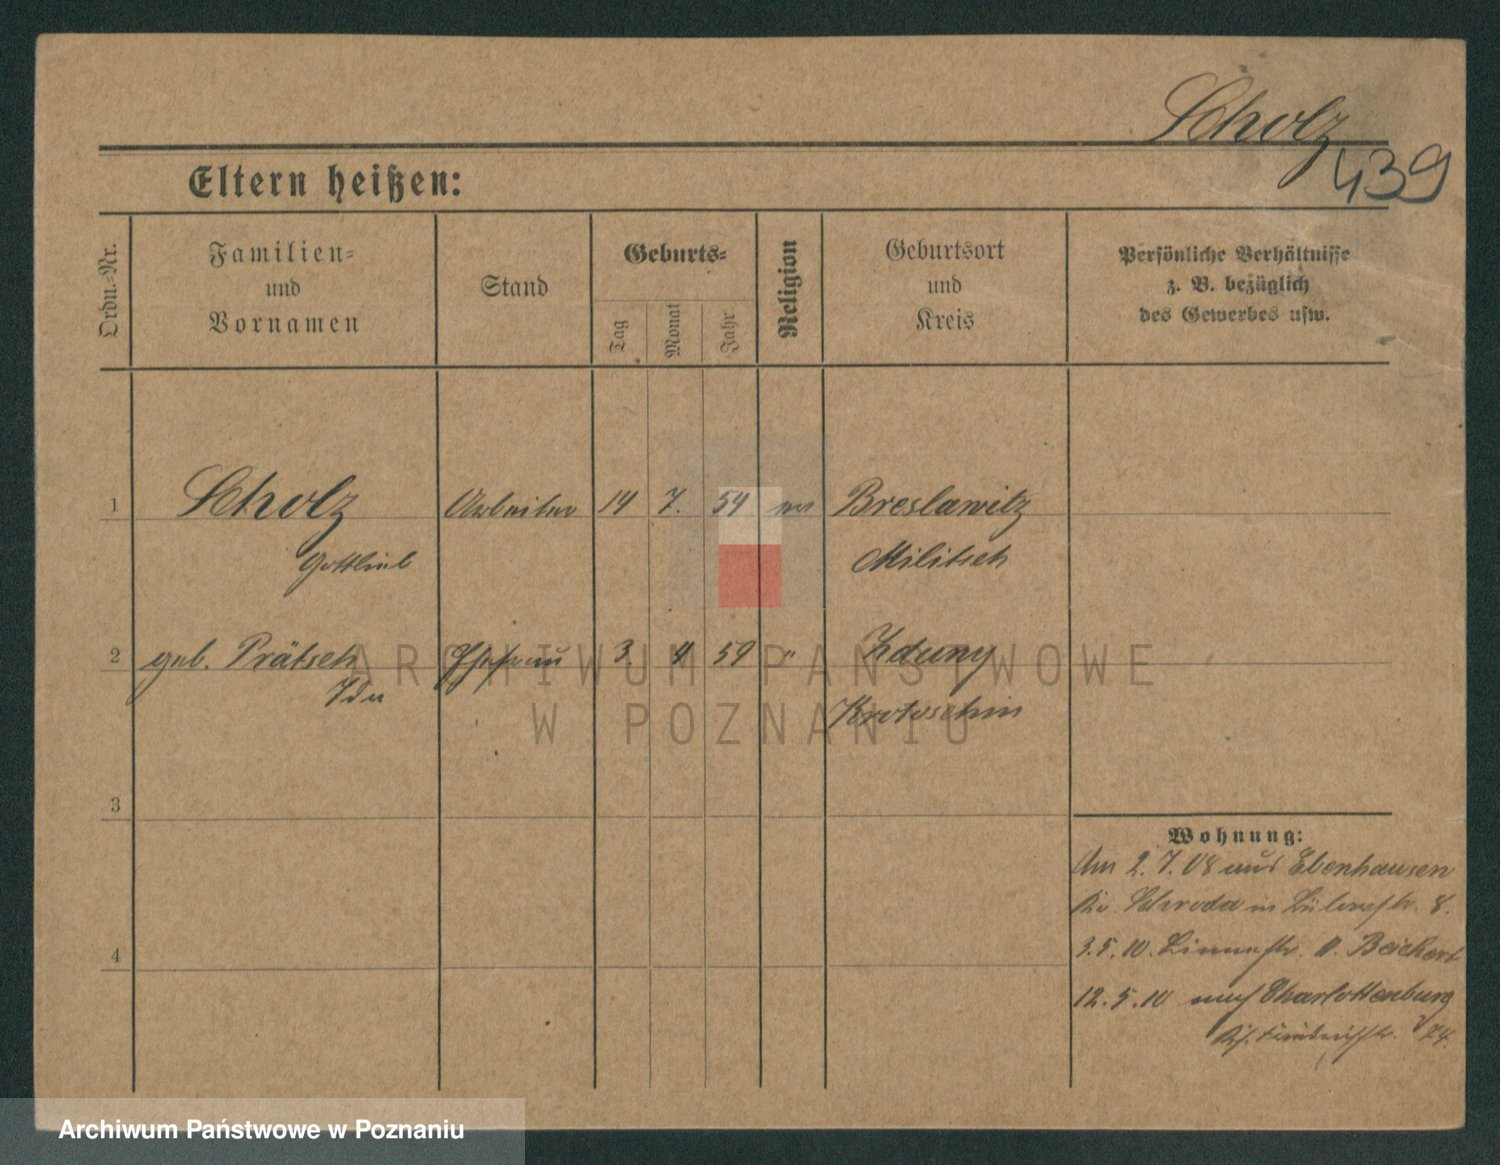 Scholz
439
Eltern heißen:
Ordn.-Nr.
Familien-
und
Vornamen
Stand
Geburts-
Tag
Monat
Jahr
Religion
Geburtsort
und
Kreis
Persönliche Verhältnisse
z. B. bezüglich
des Gewerbes usw.
1 Scholz Arbeiter 14 7. 54 ev Breslawitz
Gottlieb Militsch
2 geb. Prätsch Ehefrau 3. 4 59 " Zduny
Ida Krotoschin
3
4
Wohnung:
Am 2.7.08 aus Ebenhausen
Kr. Schroda in Bülowstr. 8.
3.5.10. Linnestr. Beickert
12.5.10 nach Charlottenburg
74.
ARCHIWUM PAŃSTWOWE
W POZNANIU
Archiwum Państwowe w Poznaniu